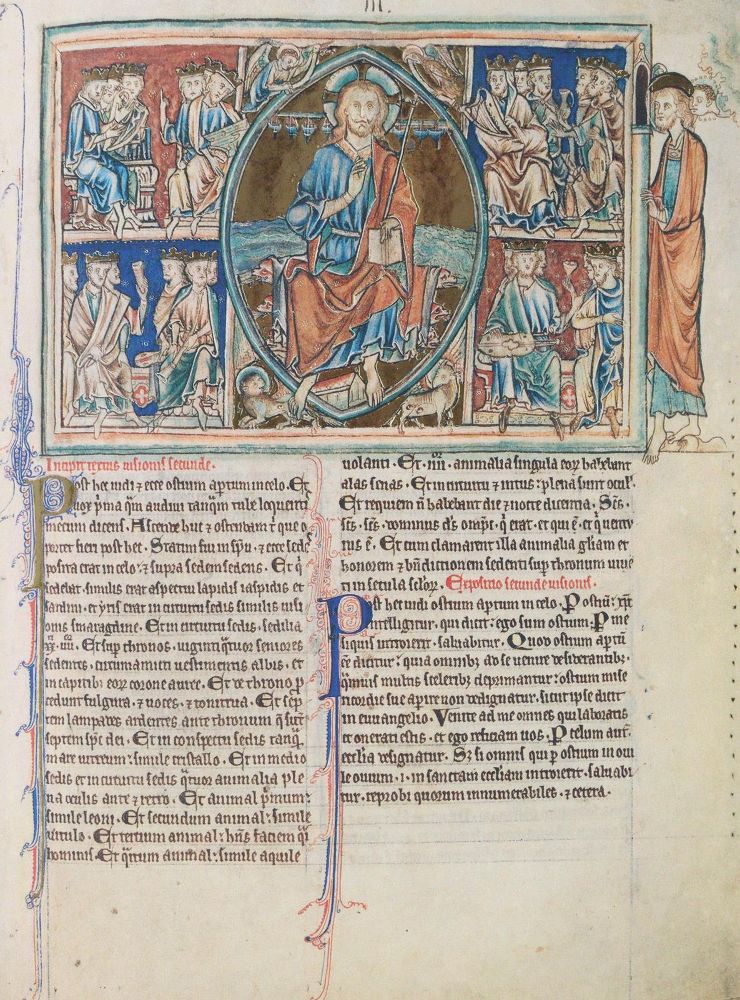 III.
Incipit textus visionis secunde.
Post hec vidi ⁊ ecce ostium aptum in celo. Et
vox pͥma qͣm audivi tanqͣm tube loquentis
mecum dicens. Ascende huc ⁊ ostendam tͥ que o
portet fieri post hec. Statim fui in spū. ⁊ ecce sedes
posita erat in celo. ⁊ supra sedem sedens. Et qͥ
sedebat similis erat aspectui lapidis iaspidis et
sardini. et yris erat in circuitu sedis similis visi
onis smaragdine. Et in circuitu sedis, sedilia
xx. iiii. Et sup thronos, viginti qͣtuor seniores
sedentes, circumamicti vestimentis albis, et
in capitibꝫ eoꝝ corone auree. Et de throno p
cedunt fulgura, ⁊ voces, ⁊ tonitrua. Et sep
tem lampades ardentes ante thronum q̄ sūt
septem spc̄ dei. Et in conspectu sedis tanqͣ
mare vitreum: simile cristallo. Et in medio
sedis et in circuitu sedis qͣtuor animalia ple
na oculis ante ⁊ retro. Et animal pͥmum:
simile leoni. Et secundum animal: simile
vitulo. Et tertium animal: hn̄s faciem qͣi
hominis. Et qͣrtum animal: simile aquile
volanti. Et. iiii. animalia singula eoꝝ habebant
alas senas. Et in circuitu ⁊ intus: plena sunt oculꝭ.
Et requiem n̄ habebant die ⁊ nocte dicentia. Sc̄s.
sc̄s. sc̄s. dominus dꝰ omīpͨ. qͥ erat. et qui ē. et qͥ ventu
rus ē. Et cum clamarent illa animalia gl̄iam et
honorem ⁊ bn̄dictionem sedenti sup thronum vive
ti in secula scl̄oꝝ. Expositio secunde visionis.
Post hec vidi ostium aptum in celo. P ostiū: xp̄c
intelligitur, qui dicit: ego sum ostium. P me
siquis introierit, salvabitur. Quod ostium aptū
ēē dicitur: quia omnibꝫ ad se venire desiderantibꝫ.
qͣmvis multis sceleribꝫ deprimantur: ostium mise
ricordie sue aperire non dedignatur. sicut ipse dicit
in evvangelio. Venite ad me omnes qui laboratis
et onerati estis. et ego reficiam vos. P celum aut̄.
eccl̄ia designatur. Sꝫ si omnis qui p ostium in ovi
le ovium. i. in sanctam eccl̄iam introierit, salvabi
tur. reprobi quorum innumerabiles. ⁊ cetera.